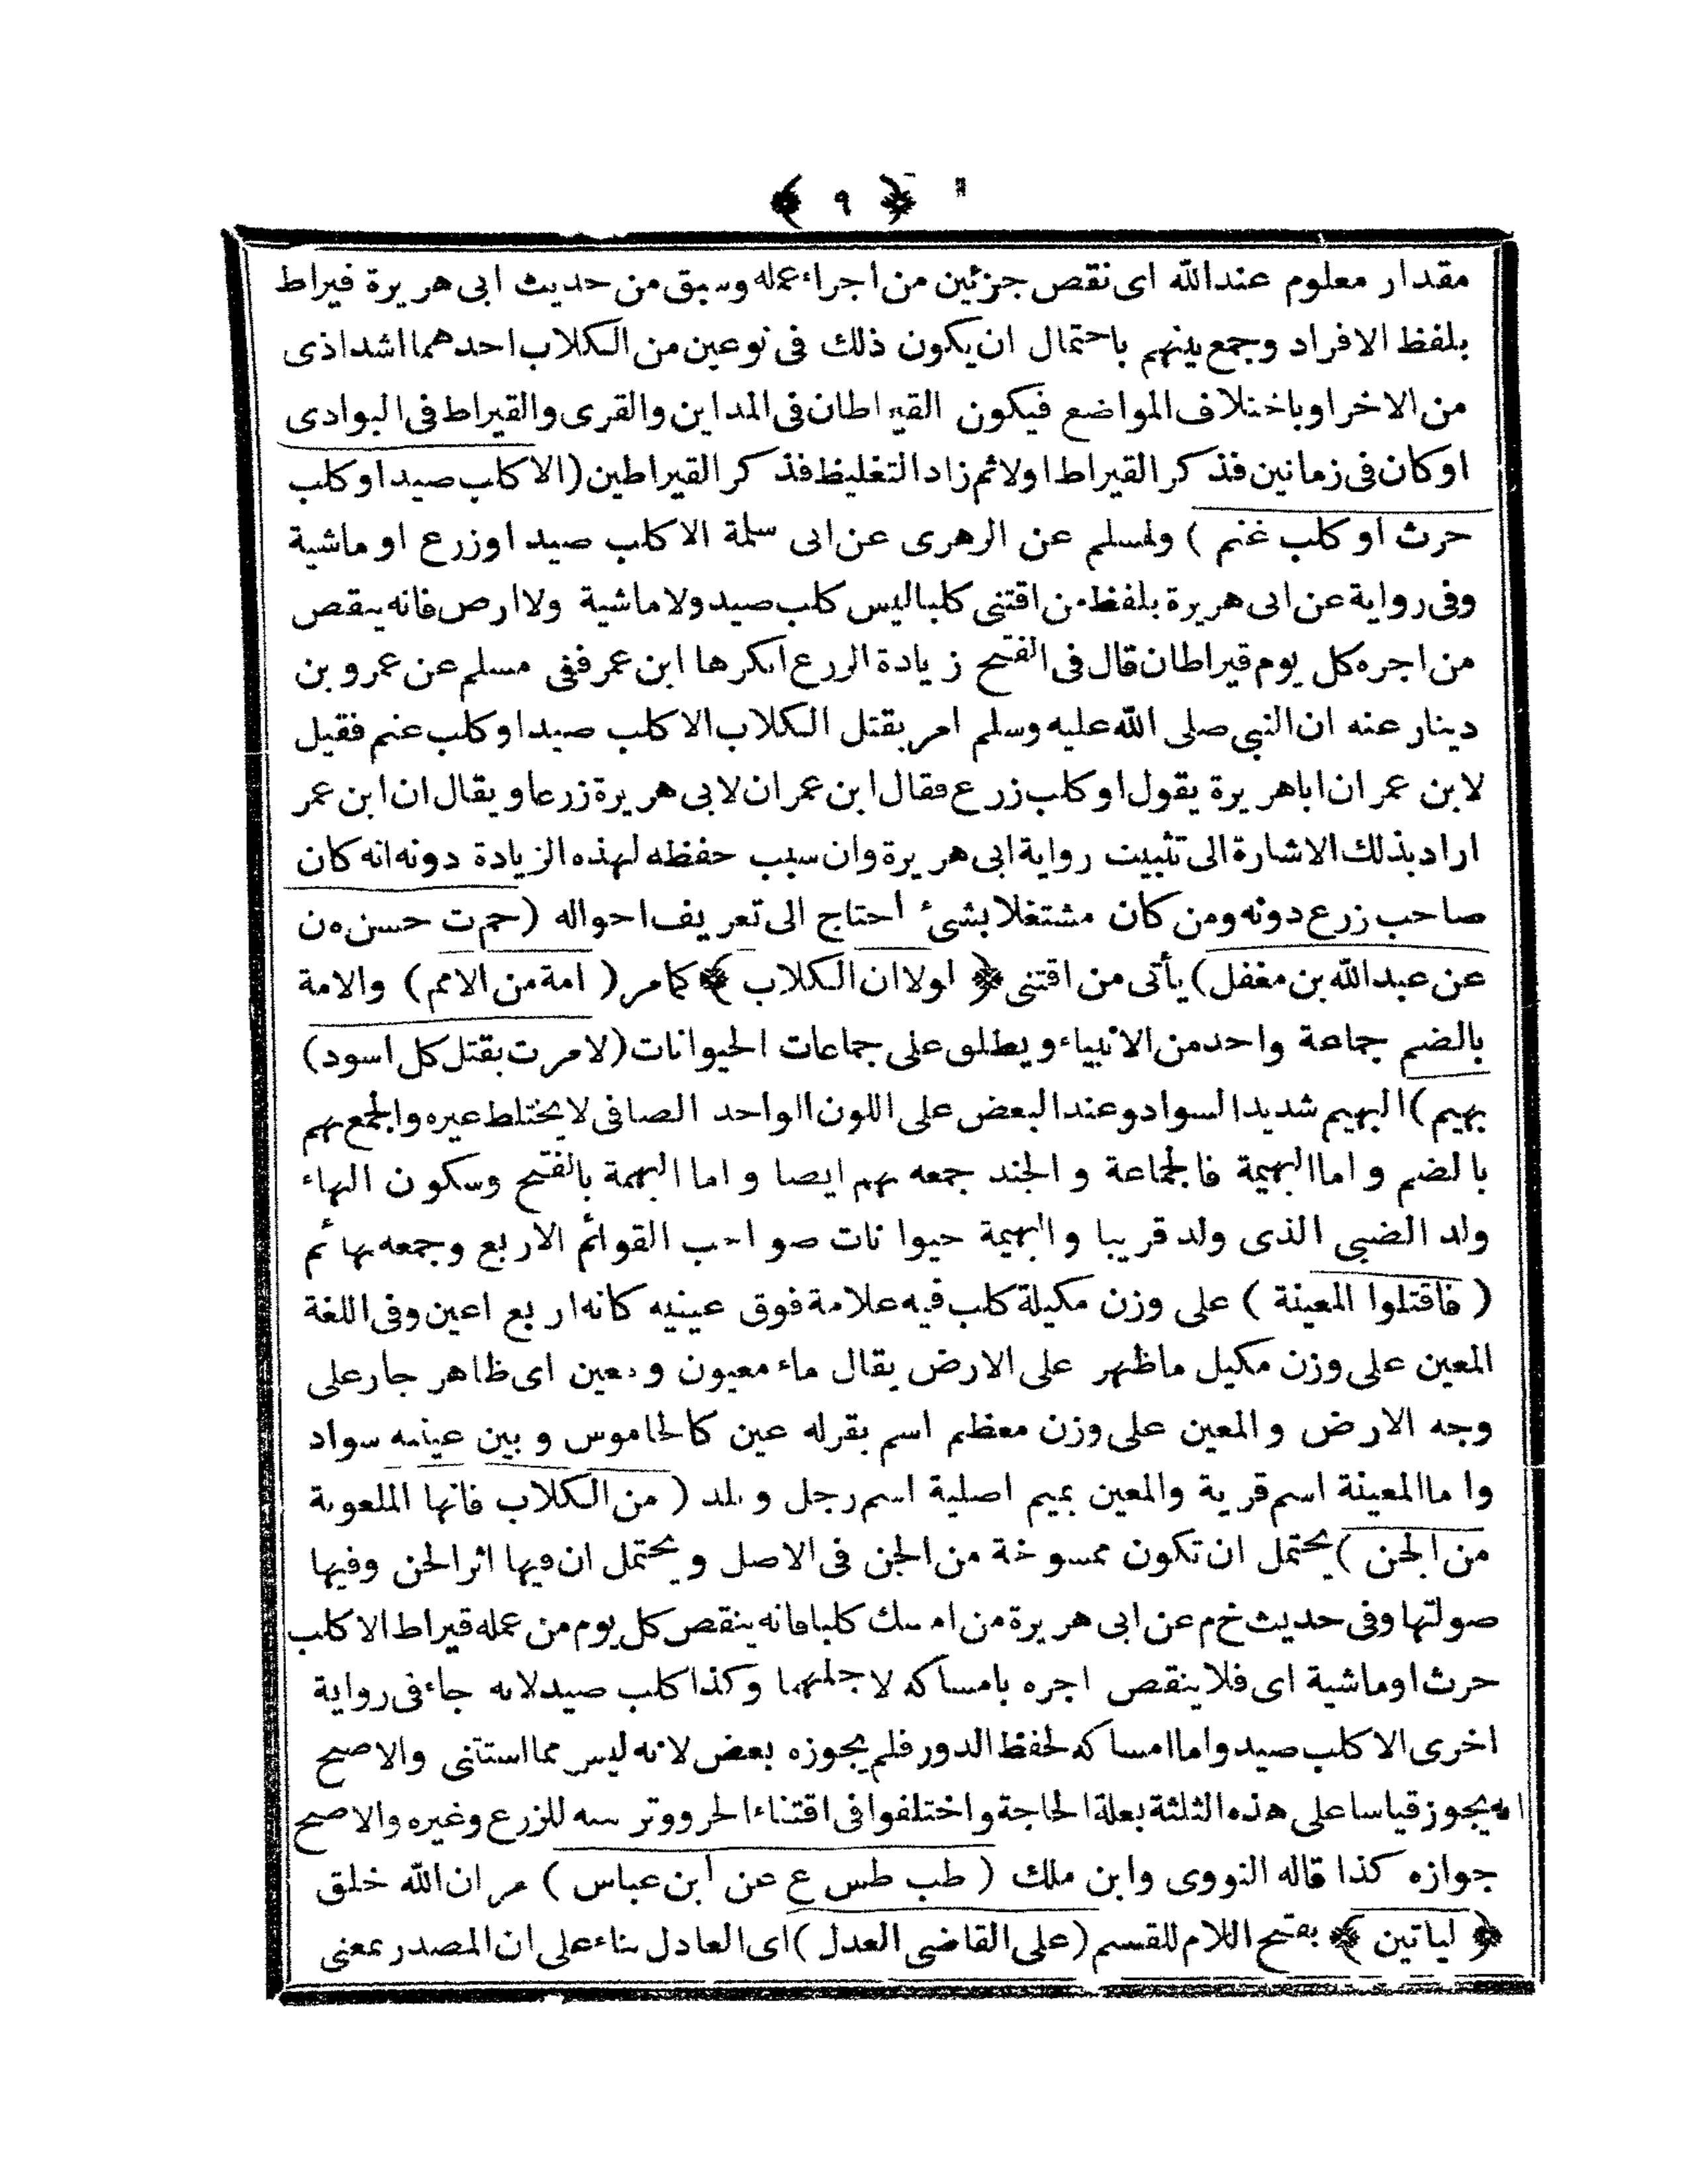 ﴿ ٩ ﴾
مقدار معلوم عندالله اى نقص جزئين من اجراء عمله وسبق من حديث ابى هريرة فيراط
بلفظ الافراد وجمع بينهم باحتمال ان يكون ذلك فى نوعين من الكلاب احدهما اشد اذى
من الاخر او باختلاف المواضع فيكون القيراطان فى المداين والقرى والقيراط فى البوادى
او كان فى زمانين فذكر القيراط اولا ثم زاد التغليظ فذكر القيراطين (الا كلب صيد او كلب
حرث او كلب غنم) ولمسلم عن الزهرى عن ابى سلمة الا كلب صيد او زرع او ماشية
وفى رواية عن ابى هريرة بلفظ من اقتنى كلبا ليس كلب صيد ولا ماشية ولا ارض فانه ينقص
من اجره كل يوم قيراطان قال فى الفتح زيادة الزرع انكرها ابن عمر ففى مسلم عن عمرو بن
دينار عنه ان النبى صلى الله عليه وسلم امر بقتل الكلاب الا كلب صيد او كلب غنم فقيل
لابن عمر ان اباهريرة يقول او كلب زرع فقال ابن عمر ان لابى هريرة زرعا ويقال ان ابن عمر
اراد بذلك الاشارة الى تثبيت رواية ابى هريرة وان سبب حفظه لهذه الزيادة دونه انه كان
صاحب زرع دونه ومن كان مشتغلا بشئ احتاج الى تعريف احواله (حم ت حسن ه ن
عن عبدالله بن مغفل) يأتى من اقتنى ﴿ لولا ان الكلاب ﴾ كمامر (امة من الامم) والامة
بالضم جماعة واحد من الانبياء ويطلق على جماعات الحيوانات (لامرت بقتل كل اسود)
بهيم) البهيم شديد السواد وعند البعض على اللون الواحد الصافى لا يختلط غيره والجمع بهم
بالضم واما البهيمة فالجماعة والجند جمعه بهم ايضا واما البهمة بالفتح وسكون الهاء
ولد الضبى الذى ولد قريبا والبهيمة حيوانات صواحب القوائم الاربع وجمعه بهائم
(فاقتلوا المعينة) على وزن مكيلة كلب فيه علامة فوق عينيه كانه اربع اعين وفى اللغة
المعين على وزن مكيل ماظهر على الارض يقال ماء معيون ومعين اى ظاهر جار على
وجه الارض والمعين على وزن معظم اسم بقرله عين كالجاموس وبين عينيه سواد
واما المعينة اسم قرية والمعين بميم اصلية اسم رجل وبلد (من الكلاب فانها الملعونة
من الجن) يحتمل ان تكون ممسوخة من الجن فى الاصل ويحتمل ان فيها اثر الجن وفيها
صولتها وفى حديث خ م عن ابى هريرة من امسك كلبا فانه ينقص كل يوم من عمله قيراط الا كلب
حرث او ماشية اى فلا ينقص اجره بامساكه لاجلهما وكذا كلب صيد لانه جاء فى رواية
اخرى الا كلب صيد واما امساكه لحفظ الدور فلم يجوزه بعض لانه ليس مما استثنى والاصح
انه يجوز قياسا على هذه الثلثة بعلة الحاجة واختلفوا فى اقتناء الجرو وتربيته للزرع وغيره والاصح
جوازه كذا قاله النووى وابن ملك (طب طس ع عن ابن عباس) مر ان الله خلق
﴿ لياتين ﴾ بفتح اللام للقسم (على القاضى العدل) اى العادل بناء على ان المصدر بمعنى